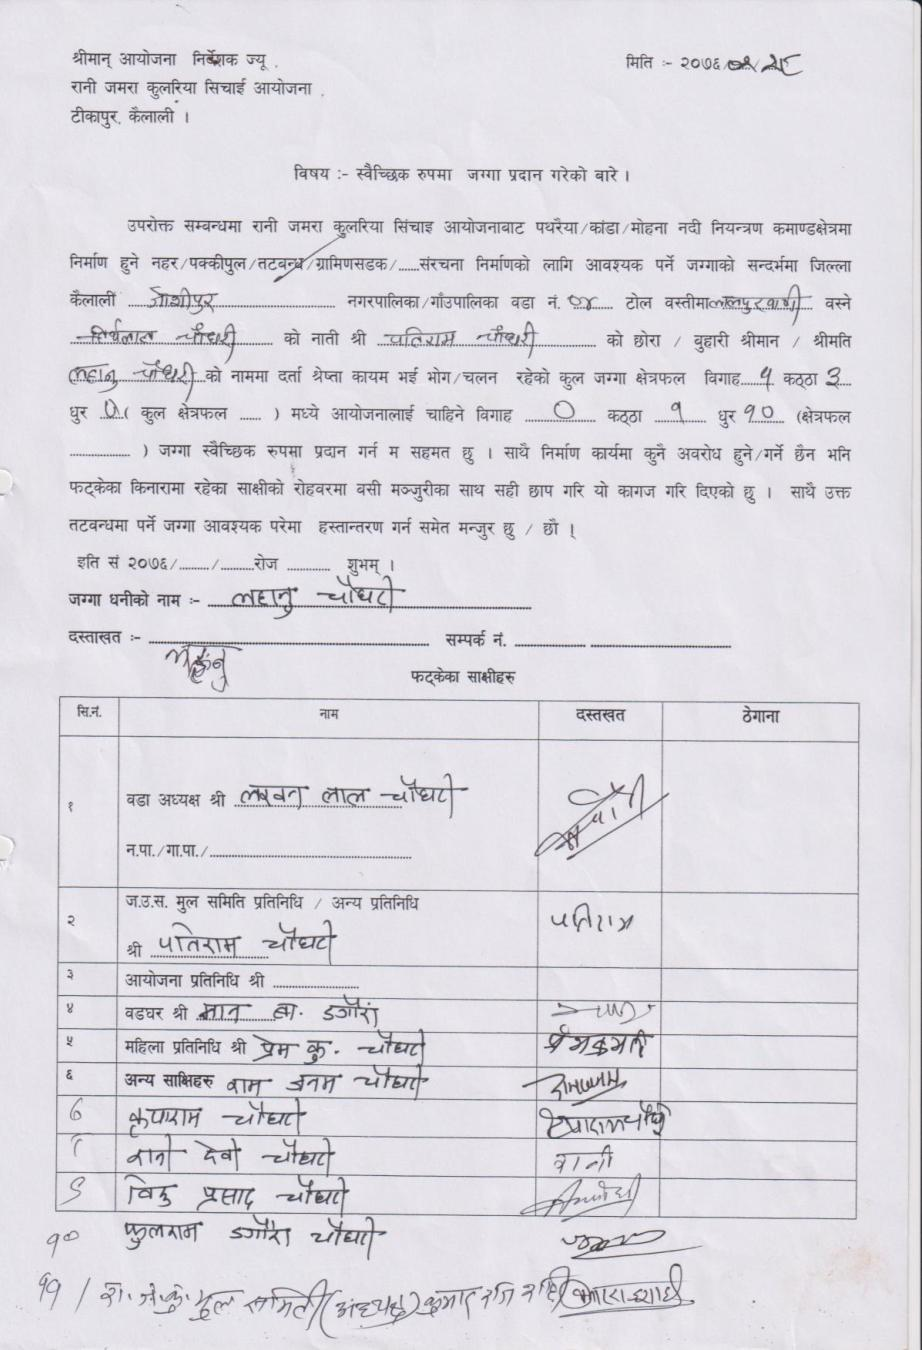 श्रीमान् आयोजना निर्देशक ज्यू, मिति :- २०७६/
रानी जमरा कुलरिया सिचाई आयोजना,
टीकापुर, कैलाली ।
विषय :- स्वैच्छिक रुपमा जग्गा प्रदान गरेको बारे ।
उपरोक्त सम्वन्धमा रानी जमरा कुलरिया सिंचाइ आयोजनाबाट पथरैया/कांडा/मोहना नदी नियन्त्रण कमाण्डक्षेत्रमा
निर्माण हुने नहर/पक्कीपुल/तटवन्ध/ग्रामिणसडक/......संरचना निर्माणको लागि आवश्यक पर्ने जग्गाको सन्दर्भमा जिल्ला
कैलाली जोशीपुर नगरपालिका/गाँउपालिका वडा नं. ०४ टोल वस्तीमा वस्ने
चौधरी को नाती श्री पतिराम चौधरी को छोरा / बुहारी श्रीमान / श्रीमति
लहानु चौधरी को नाममा दर्ता श्रेष्ता कायम भई भोग/चलन रहेको कुल जग्गा क्षेत्रफल विगाह १ कठ्ठा ३
धुर ( कुल क्षेत्रफल ...... ) मध्ये आयोजनालाई चाहिने विगाह ० कठ्ठा १ धुर १० (क्षेत्रफल
................ ) जग्गा स्वैच्छिक रुपमा प्रदान गर्न म सहमत छु । साथै निर्माण कार्यमा कुनै अवरोध हुने/गर्ने छैन भनि
फट्केका किनारामा रहेका साक्षीको रोहवरमा वसी मञ्जुरीका साथ सही छाप गरि यो कागज गरि दिएको छु । साथै उक्त
तटवन्धमा पर्ने जग्गा आवश्यक परेमा हस्तान्तरण गर्न समेत मन्जुर छु / छौ ।
इति सं २०७६/......../.........रोज ............ शुभम् ।
जग्गा धनीको नाम :- लहानु चौधरी
दस्ताखत :- सम्पर्क नं.
लहानु
फट्केका साक्षीहरु
सि.नं. नाम दस्तखत ठेगाना
१ वडा अध्यक्ष श्री लखन लाल चौधरी
न.पा./गा.पा./
२ ज.उ.स. मुल समिति प्रतिनिधि / अन्य प्रतिनिधि
श्री पतिराम चौधरी पतिराम
३ आयोजना प्रतिनिधि श्री
४ वडघर श्री मान ब. डगौरा
५ महिला प्रतिनिधि श्री प्रेम कु. चौधरी
६ अन्य साक्षिहरु राम जनम चौधरी
७ कृपाराम चौधरी
८ रानी देवी चौधरी रानी
९ प्रसाद चौधरी
१० फुलराम डगौरा चौधरी
११/ मुल समिति (अध्यक्ष)